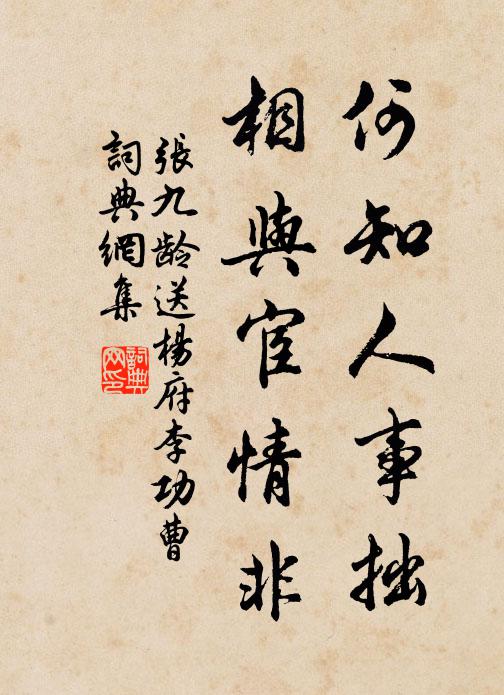 何知人事拙
相與宦情非
張九龄送楊府李功曹
詞典網集
詞典網印